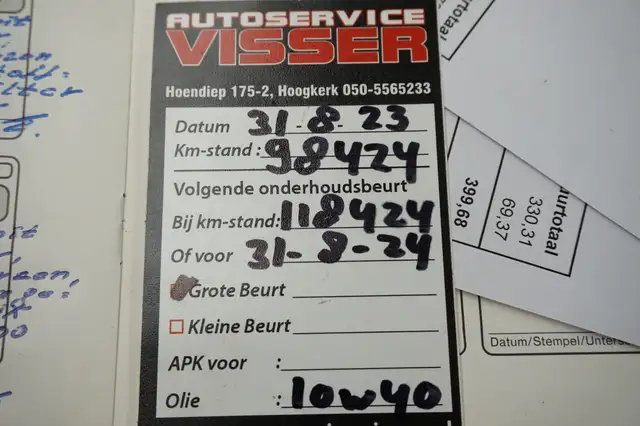 AUTOSERVICE
VISSER
Hoendiep 175-2, Hoogkerk 050-5565233
Datum 31-8-23
Km-stand: 98424
Volgende onderhoudsbeurt
Bij km-stand: 118424
Of voor 31-8-24
Grote Beurt
Kleine Beurt
APK voor :
Olie : 10w40
urtotaal
uurtotaal
330,31
69,37
399,68
Datum/Stempel/Unters